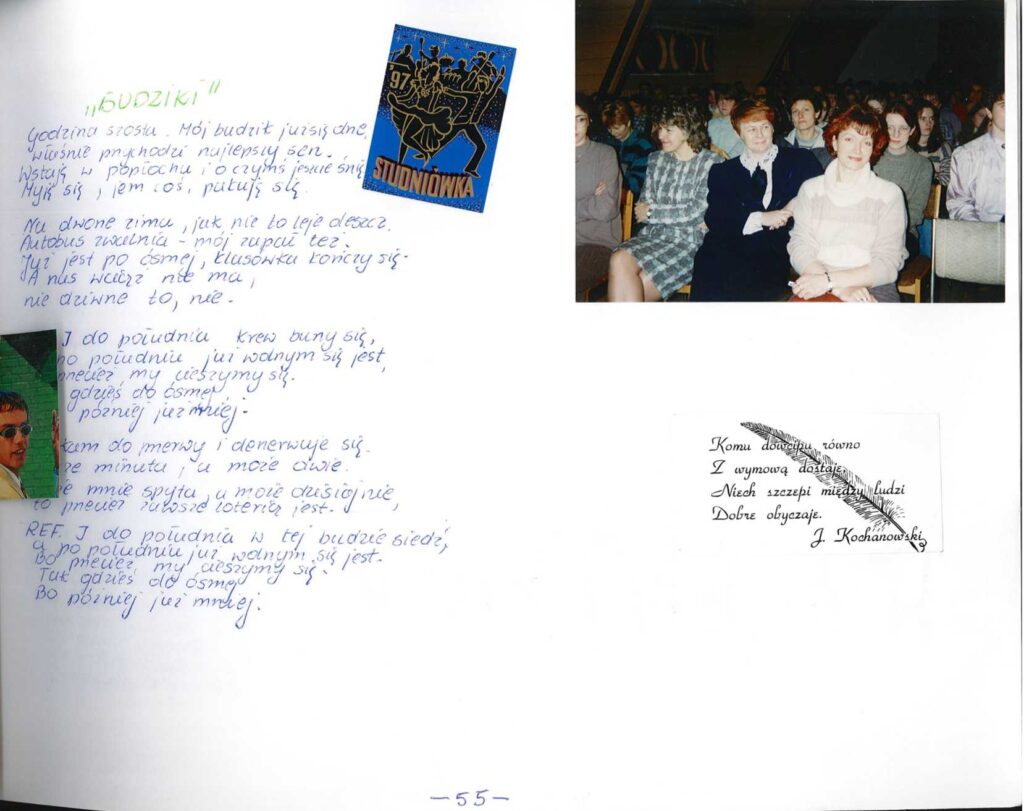 „BUDZIKI"
Godzina szósta. Mój budzik już się drze,
właśnie przychodzi najlepszy sen.
Wstaję w popłochu i o czymś jeszcze śnię
Myję się, jem coś, pakuję się.
Na dworze zima, jak nie to leje deszcz.
Autobus zwalnia - mój zapał też.
Już jest po ósmej, klasówka kończy się -
A nas wciąż nie ma,
nie dziwne to, nie.
I do południa krew burzy się,
po południu już wolnym się jest,
przecież my cieszymy się.
gdzieś do ósmej
później już mniej.
do przerwy i denerwuję się.
minuta, a może dwie.
mnie spyta, a może dzisiaj nie,
to przecież zawsze loterią jest.
REF. I do południa w tej budzie siedź,
a po południu już wolnym się jest.
Bo przecież my cieszymy się.
Tak gdzieś do ósmej
Bo później już mniej.
'97
STUDNIÓWKA
Komu dowcipu równo
Z wymową dostaje,
Niech szczepi między ludzi
Dobre obyczaje.
J. Kochanowski
-55-